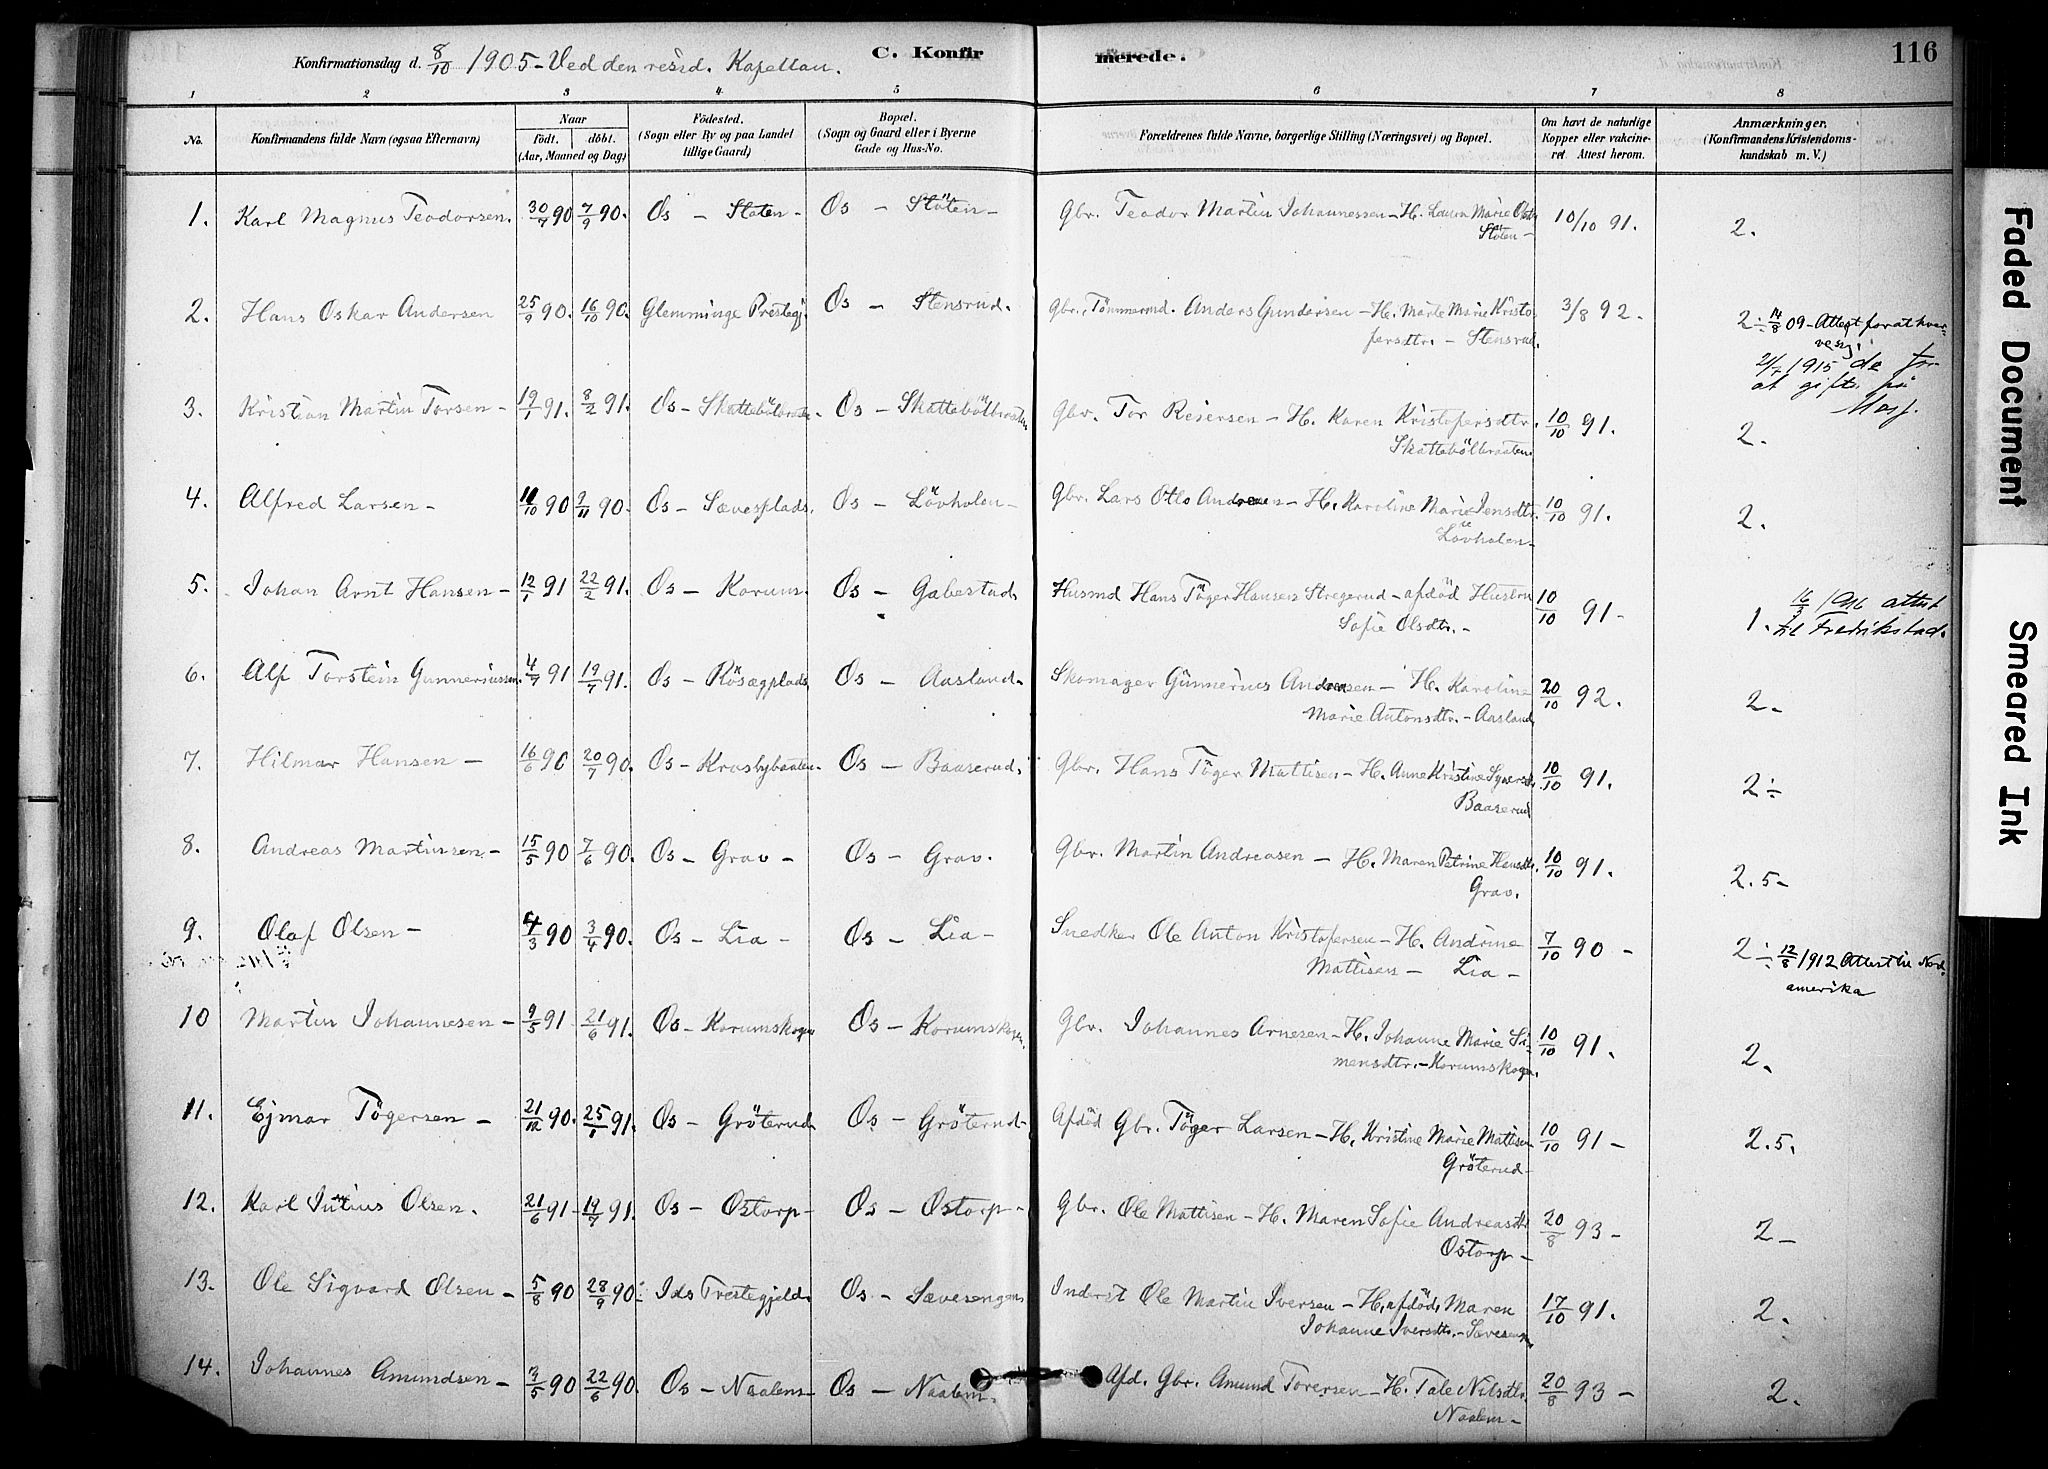 Konfirmationsdag d. 8/10 1905 - Ved den resid. Kapellan.
C. Konfirmerede.
116
1 2 3 4. 5 6 7 8
No.
Konfirmandens fulde Navn (ogsaa Efternavn)
Naar
födt. döbt.
(Aar, Maaned og Dag)
Födested.
(Sogn eller By og paa Landet
tillige Gaard)
Bopæl.
(Sogn og Gaard eller i Byerne
Gade og Hus-No.
Forældrenes fulde Navne, borgerlige Stilling (Næringsvei) og Bopæl.
Om havt de naturlige
Kopper eller vakcine-
ret Attest herom.
Anmærkninger.
(Konfirmandens Kristendoms-
kundskab m. V.)
1. Karl Magnus Teodorsen. 30/7 90 7/9 90. Os - Sloten - Os - Slöten - Gbr. Teodor Martin Johannessen - H. Laura Marie 10/10 91. 2.
Slöten -
2. Hans Oskar Andersen 25/9 90. 16/10 90. Glemminge Prestegj. Os - Stensrud. Gbr., Tömmermd. Anders Gundersen - H. Marte Marie Kristo- 3/8 92. 2 ÷ 14/8 09 - Attest for at hver-
fersdtr. - Stensrud.
vesg.
21/7 1915 do for
at gifte på
3. Kristian Martin Torsen - 19/1 91. 8/2 91. Os - Skattebölbraaten. Os - Skattebölbraaten Gbr. Tor Reiersen - H. Karen Kristofersdtr. 10/10 91. 2.
Skattebölbraaten
4. Alfred Larsen - 11/10 90 2/11 90. Os - Sævesplads. Os - Lövholen - Gbr. Lars Otto Andresen - H. Karoline Marie Jensdtr. 10/10 91. 2.
Lövholen -
5. Johan Arnt Hansen - 12/1 91 22/2 91. Os - Korum. Os - Gabestad. Husmd Hans Töger Hansen Stregerud - afdöd Hustru 10/10 91 - 1. 16/3 1916 attest
Sofie Olsdtr. -
til Fredrikstad.
6. Alf Torstein Gunneriussen. 4/7 91 19/7 91. Os - Rösægplads Os - Aasland. Skomager Gunnerius Andersen - H. Karoline 20/10 92. 2.
Marie Antonsdtr. - Aasland
7. Hilmar Hansen - 16/6 90 20/7 90. Os - Krosbybraaten. Os - Baaserud. Gbr. Hans Töger Mattisen - H. Anne Kristine Syversdtr. 10/10 91. 2 ÷
Baaserud
8. Andreas Martinsen - 15/5 90 7/6 90. Os - Grav - Os - Grav. Gbr. Martin Andreasen - H. Maren Petrine Hansdtr. 10/10 91. 2.5 -
Grav.
9. Olaf Olsen - 4/3 90 3/4 90. Os - Lia - Os - Lia - Snedker Ole Anton Kristofersen - H. Andrine 7/10 90 - 2 ÷ 12/8 1912 Attest til Nord-
Mattisen - Lia -
amerika
10 Martin Johannesen - 9/5 91 21/6 91. Os - Korumskogen Os - Korumskogen. Gbr. Johannes Arnesen - H. Johanne Marie Si- 10/10 91. 2.
mensdtr. - Korumskogen.
11. Ejmar Tögersen - 21/12 90. 25/1 91. Os - Gröterud. Os - Gröterud - Afdöd Gbr. Töger Larsen - H. Kristine Marie Mattisen 10/10 91 - 2.5.
Gröterud -
12. Karl Julius Olsen. 21/6 91 - 19/7 91. Os - Ostorp - Os - Ostorp - Gbr. Ole Mattisen - H. Maren Sofie Andreasdtr 20/8 93 - 2 -
Ostorp -
13. Ole Sigvard Olsen - 5/8 90 28/9 90. Ids Prestegjeld. Os - Sævesengen Inderst Ole Martin Iversen - H. afdöde Maren 17/10 91. 2.
Johanne Iversdtr. - Sævesengen
14. Johannes Amundsen - 3/5 90 22/6 90. Os - Naalem - Os - Naalem. Afd. Gbr. Amund Torersen - H. Tale Nilsdtr. 20/8 93 - 2.
Naalem -
Faded Document
Smeared Ink